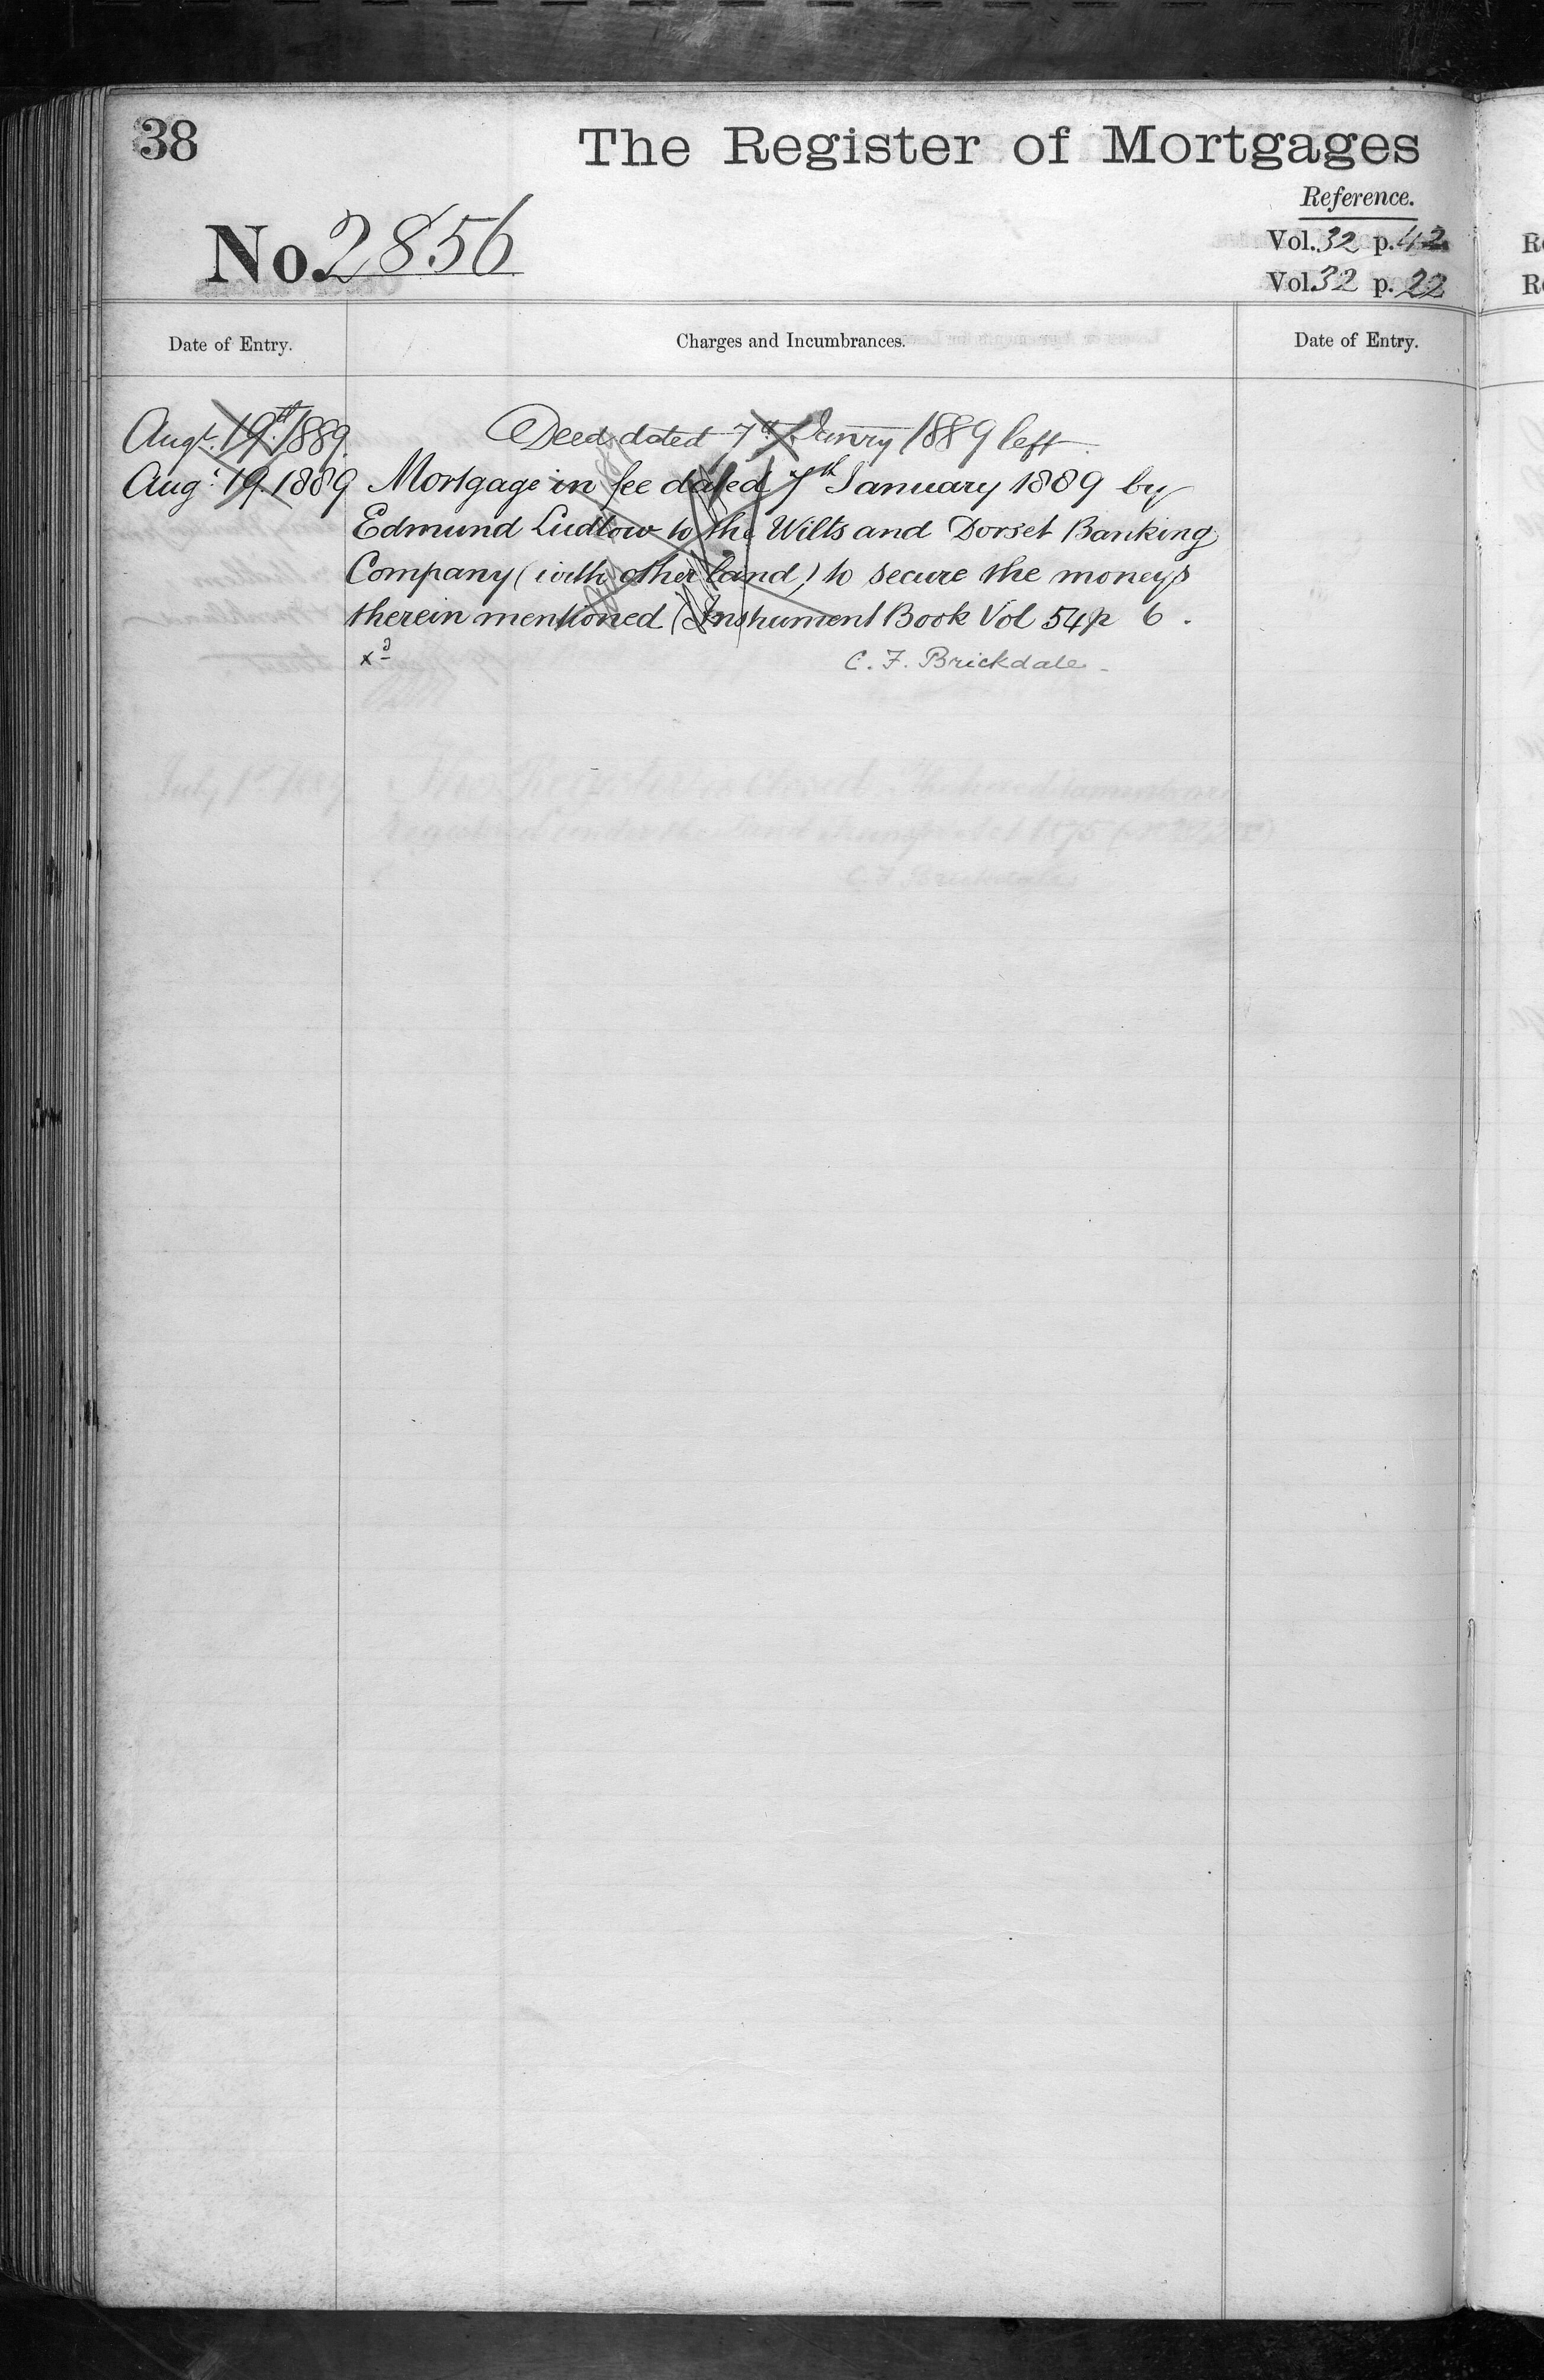 38
The Register of Mortgages
Reference.
No. 2856
Vol. 32 p. 42
Vol. 32 p. 22
Date of Entry.
Charges and Incumbrances.
Date of Entry.
Augt. 19th 1889.
Deed dated 7th Janry 1889 left.
Augt. 19. 1889
Mortgage in fee dated 7th January 1889 by
Edmund Ludlow to the Wilts and Dorset Banking
Company (with other land) to secure the moneys
therein mentioned (Instrument Book Vol 54 p 6.
xd
C. F. Brickdale.